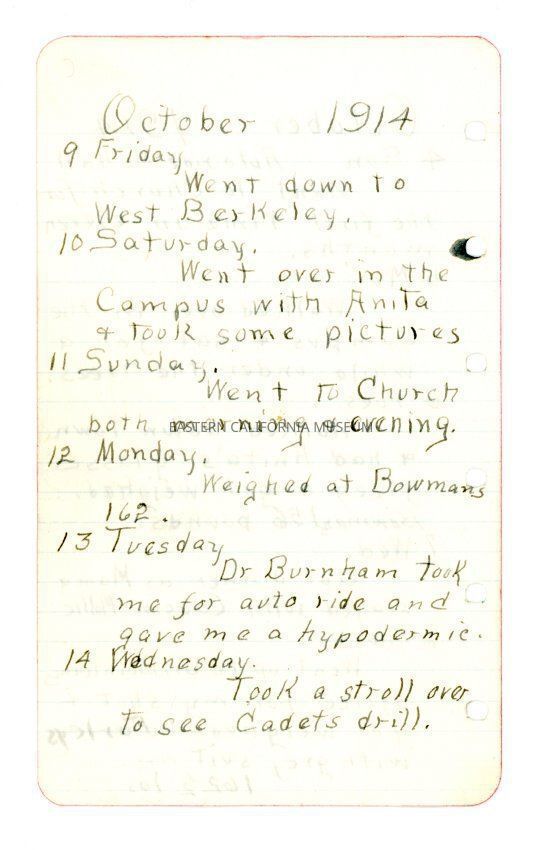 October 1914
9 Friday
Went down to
West Berkeley.
10 Saturday.
Went over in the
Campus with Anita
& took some pictures
11 Sunday.
Went to Church
both morning & evening.
EASTERN CALIFORNIA MUSEUM
12 Monday.
Weighed at Bowmans
162.
13 Tuesday
Dr Burnham took
me for auto ride and
gave me a hypodermic.
14 Wednesday.
Took a stroll over
to see Cadets drill.